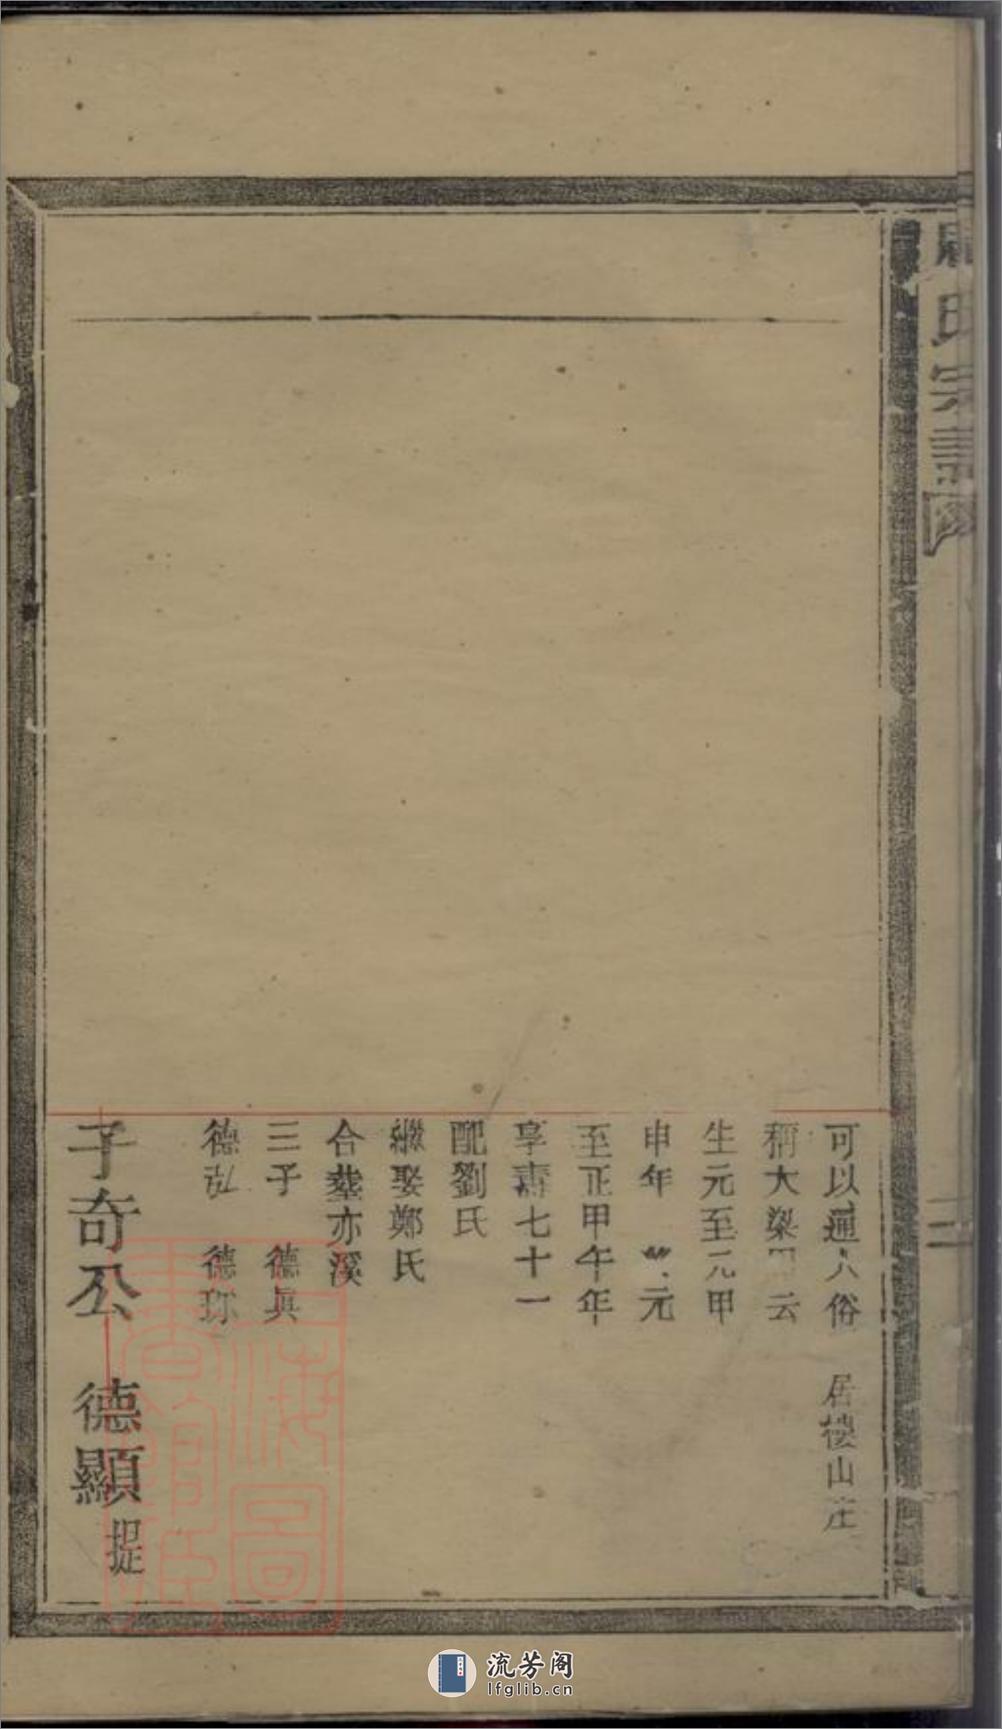 氏宗譜
二
可以通人俗 居樓山庄
稱大梁 云
生元至元甲
申年 元
至正甲午年
享壽七十一
配劉氏
繼娶鄭氏
合葬亦溪
三子 德真
德弘 德珎
子奇公 德顯 提
上海圖書館藏
流芳阁
lfglib.cn